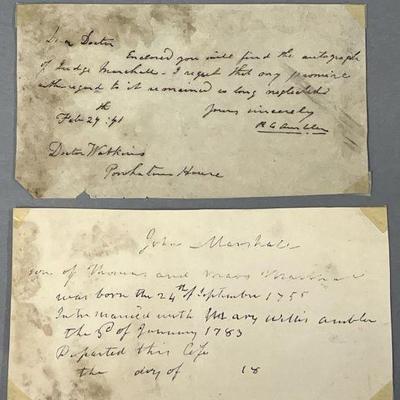 Dear Doctor
Enclosed you will find the autograph
of Judge Marshall - I regret that my promise
with regard to it remained so long neglected
Yours sincerely
Feb 27th
Doctor Watkins
Powhatan House
John Marshall
son of Thomas and Mary Marshall
was born the 24th of September 1755
Intermarried with Mary Willis Ambler
the 3d of January 1783
Departed this life
the day of 18